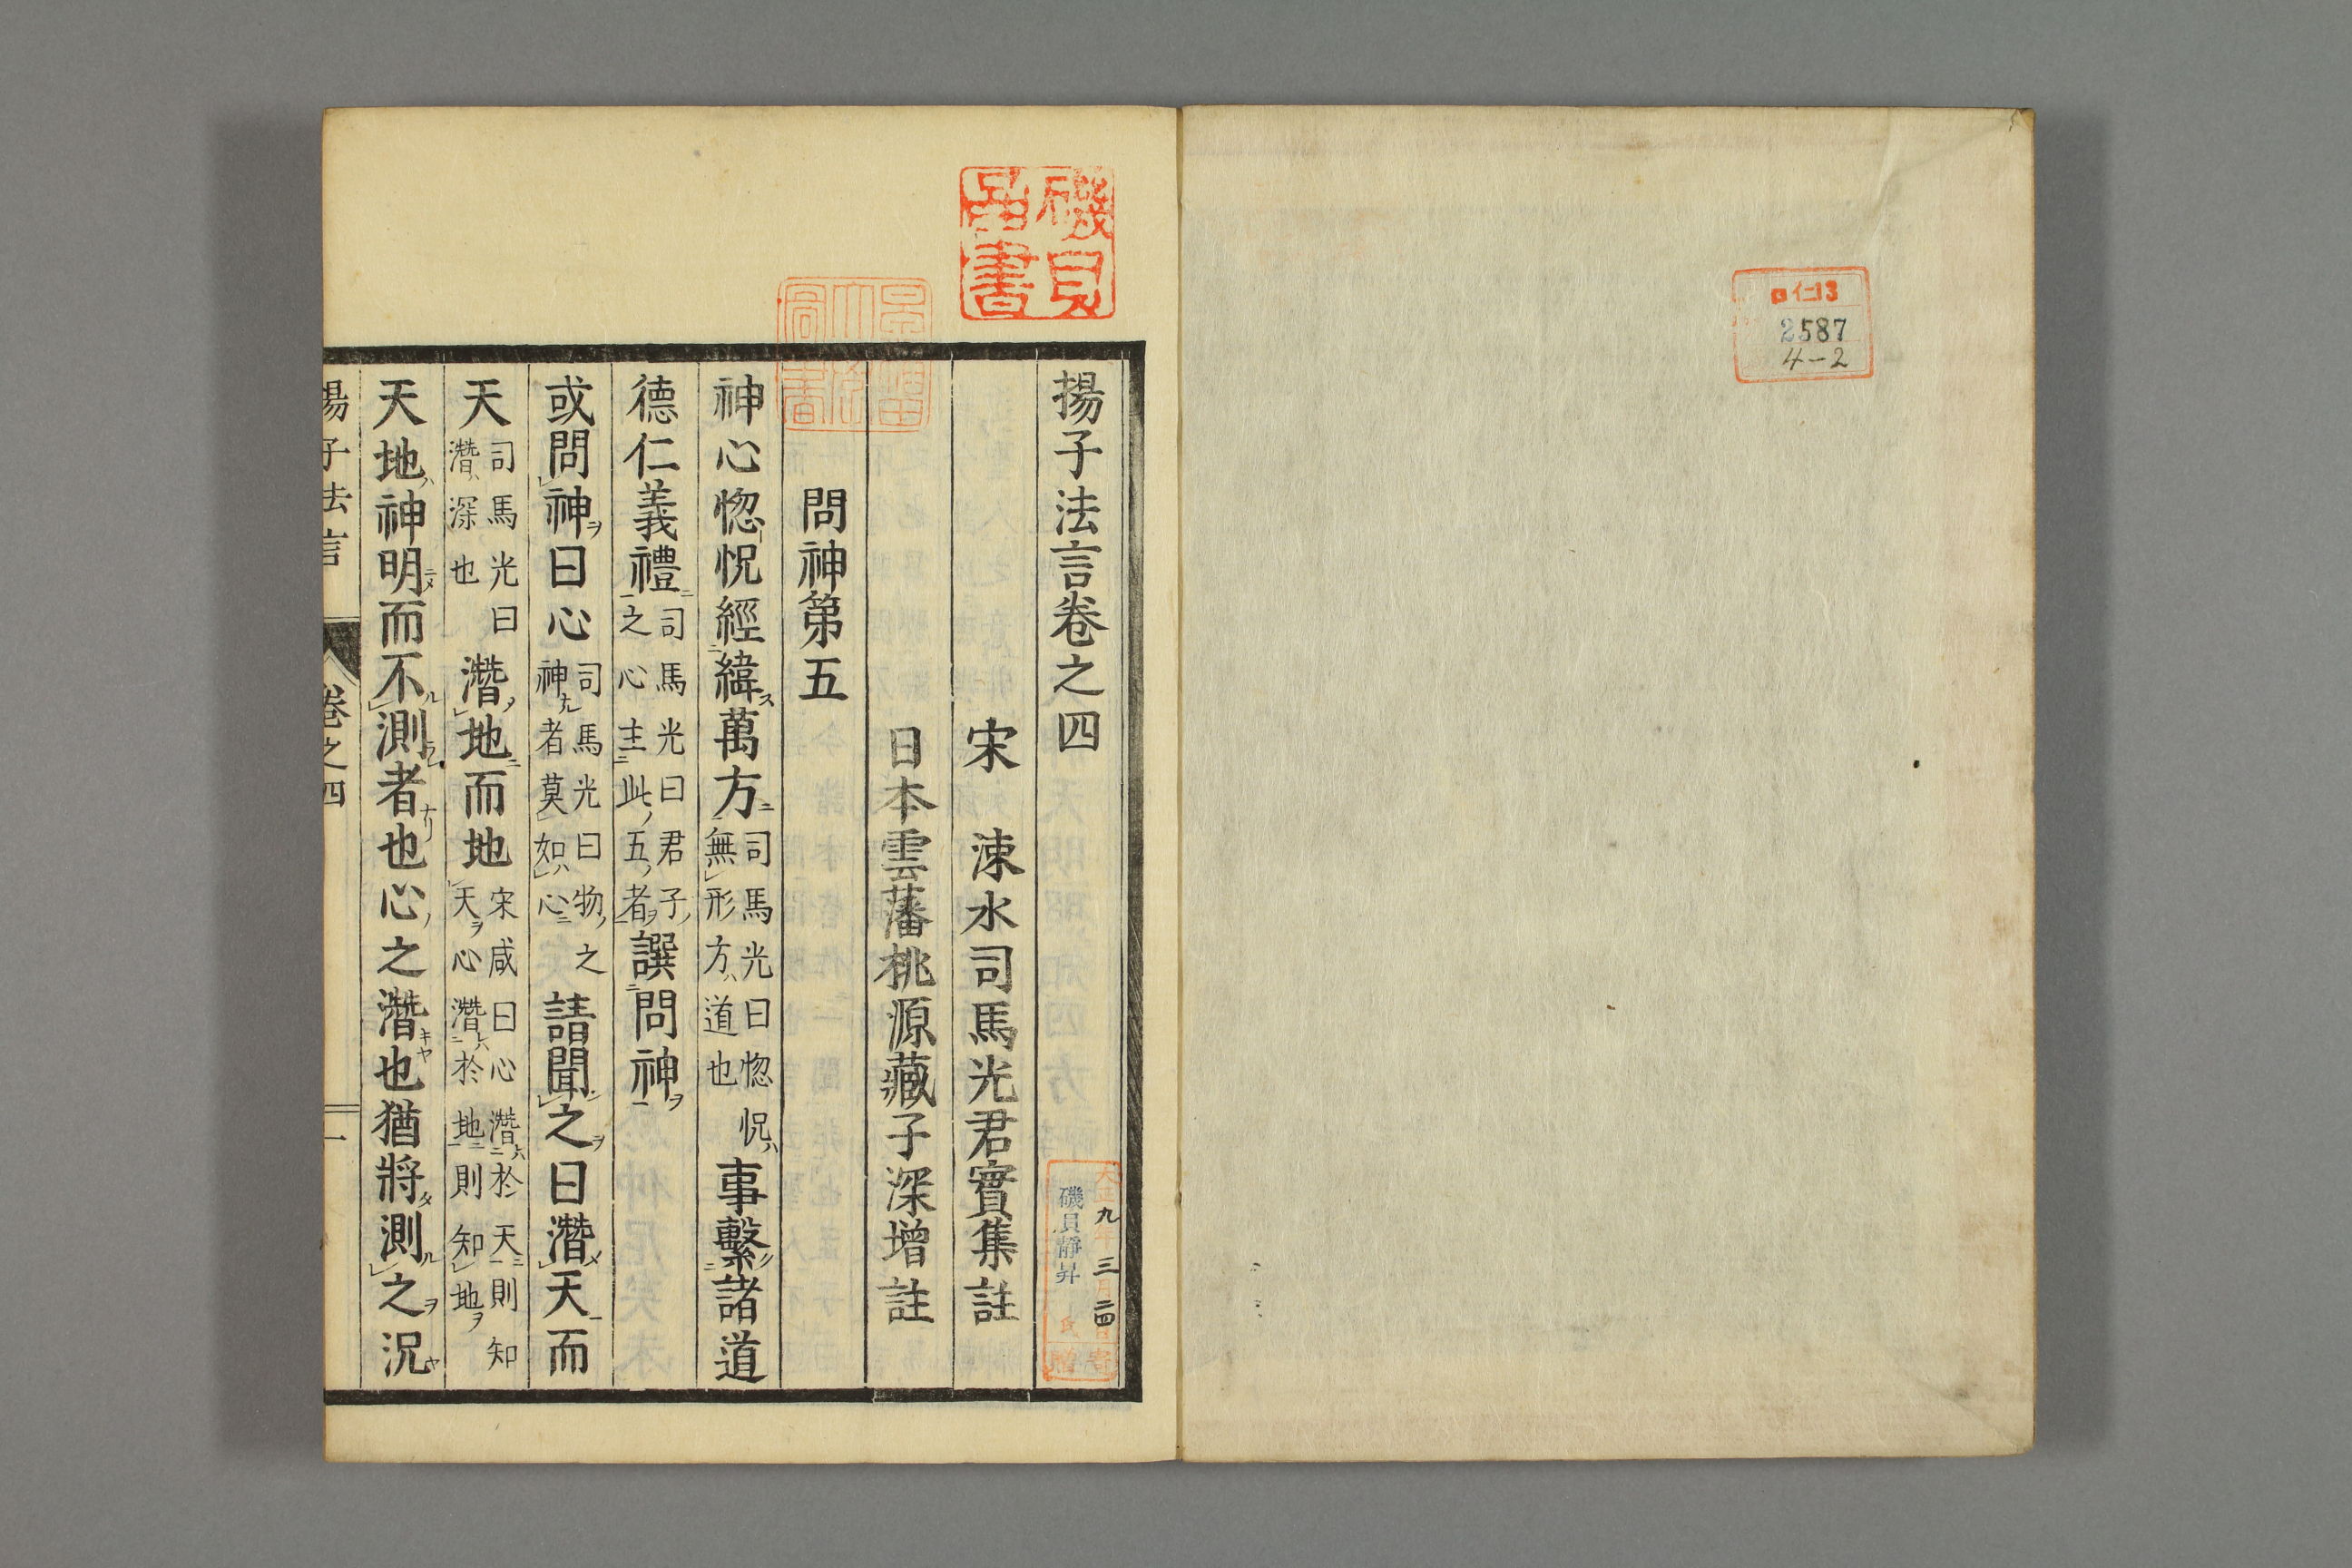 口仁13
2587
4-2
磯貝
書
大正九年三月二四日寄
磯貝靜昇
贈
揚子法言卷之四
宋 涑水司馬光君實集註
日本雲藩桃源藏子深增註
問神第五
神心惚怳經緯萬方司馬光曰惚怳無形方道也事繫諸道
德仁義禮司馬光曰君子之心主此五者譔問神
或問神曰心司馬光曰物之神者莫如心請聞之曰潛天而
天司馬光曰潛深也潛地而地宋咸曰心潛於天則知天心潛於地則知地
天地神明而不測者也心之潛也猶將測之況
揚子法言 卷之四 一